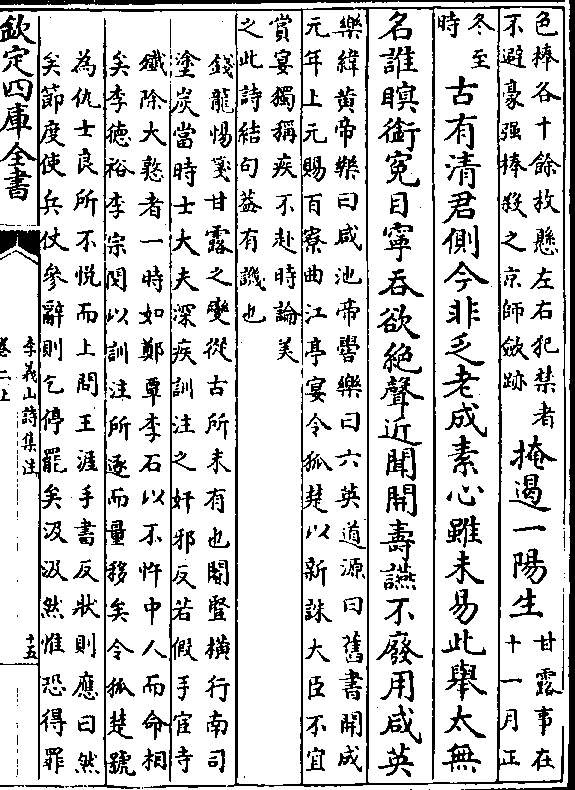 色棒各十餘枚懸左右犯禁者
不避豪强棒殺之京師斂跡
掩遏一陽生
甘露事在
十一月正
冬至
時
古有清君側今非乏老成素心雖未易此舉太無
名誰瞑銜寃目寧吞欲絶聲近聞開壽讌不廢用咸英
樂緯黄帝樂曰咸池帝嚳樂曰六英道源曰舊書開成
元年上元賜百寮曲江亭宴令狐楚以新誅大臣不宜
賞宴獨稱疾不赴時論美
之此詩結句葢有譏也
錢龍惕箋甘露之變從古所未有也閹豎横行南司
塗炭當時士大夫深疾訓注之奸邪反若假手宦寺
殲除大憝者一時如鄭覃李石以不忤中人而命相
矣李德裕李宗閔以訓注所逐而量移矣令狐楚號
為仇士良所不悦而上問王涯手書反狀則應曰然
矣節度使兵仗參辭則乞停罷矣汲汲然惟恐得罪
欽定四庫全書
李義山詩集注
卷二上
十五